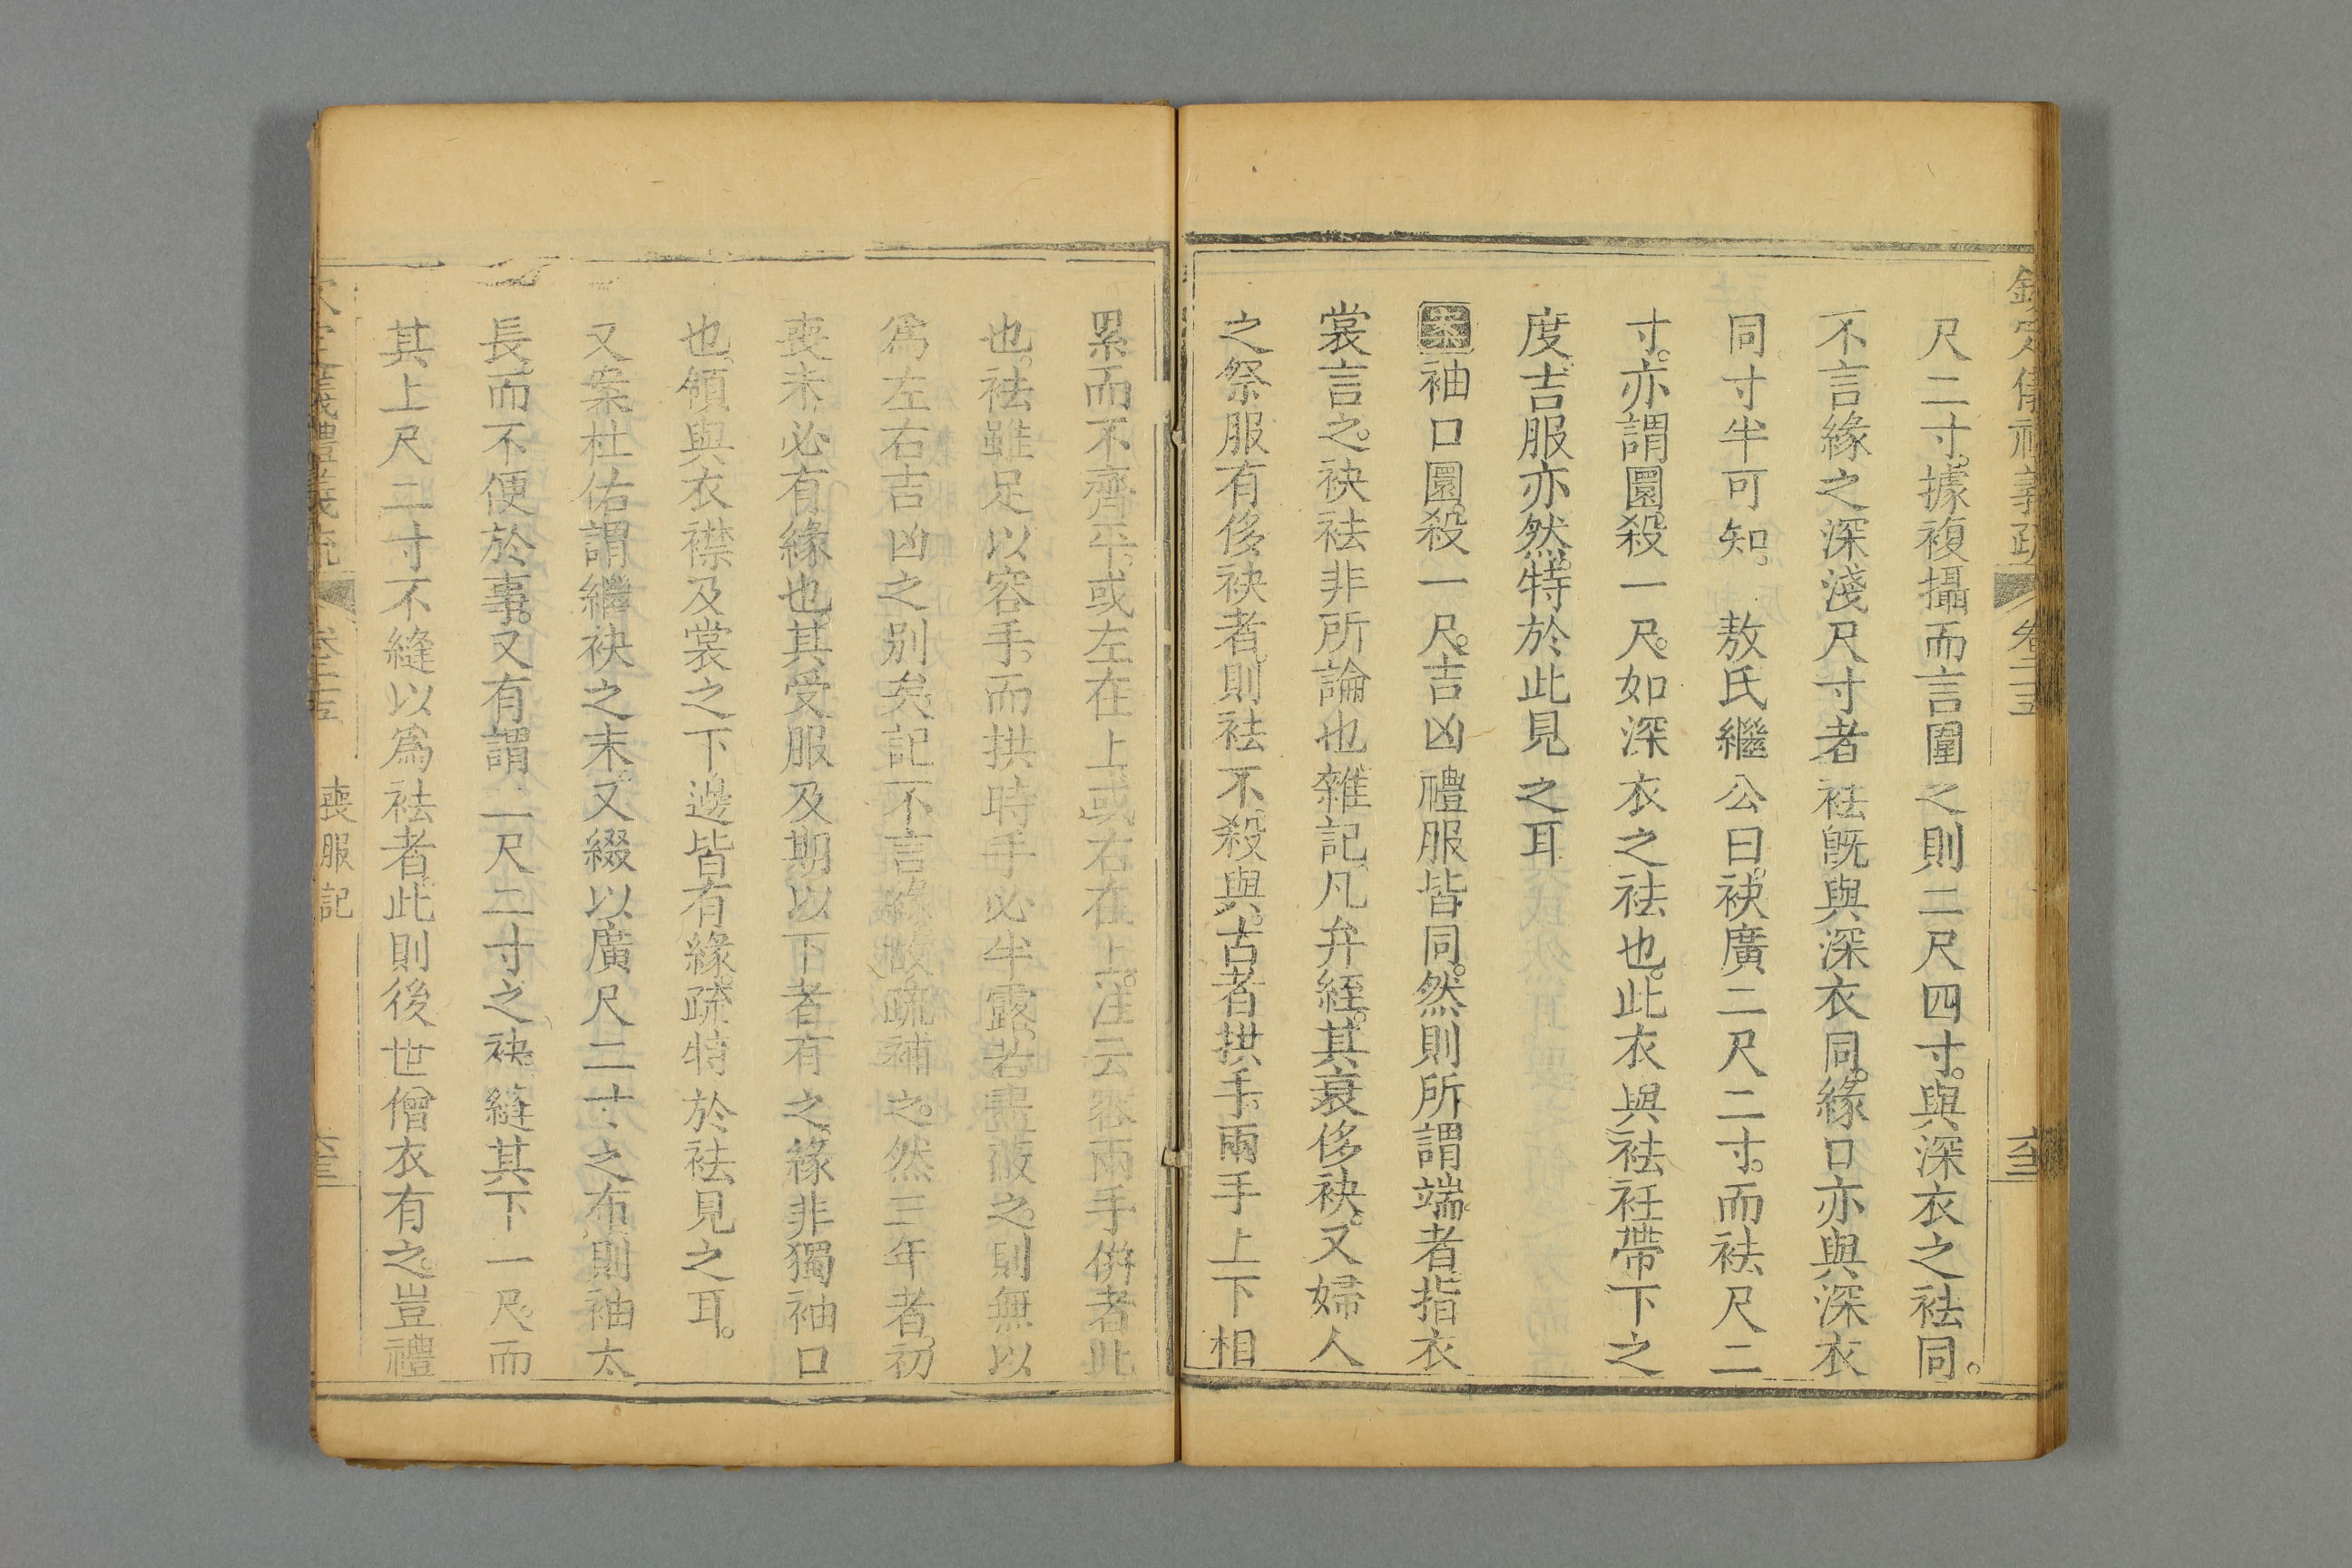 欽定儀禮義疏 卷二十五
尺二寸。據複攝而言圍之則二尺四寸。與深衣之袪同。
不言緣之深淺尺寸者袪旣與深衣同。緣口亦與深衣
同寸半可知。 敖氏繼公曰。袂廣二尺二寸。而袪尺二
寸。亦謂圜殺一尺。如深衣之袪也。此衣與袪衽帶下之
度。吉服亦然。特於此見之耳
案袖口圜。殺一尺。吉凶禮服皆同。然則所謂端者。指衣
裳言之。袂袪非所論也雜記。凡弁絰。其衰侈袂。又婦人
之祭服有侈袂者。則袪不殺與。古者拱手。兩手上下相
累而不齊平。或左在上或右在上。注云容兩手倂者此
也。袪雖足以容手。而拱時手必半露。若盡被之。則無以
爲左右吉凶之别矣記不言緣故疏補之。然三年者。初
喪未必有緣也。其受服及期以下者有之。緣非獨袖口
也。領與衣襟及裳之下邊皆有緣。疏特於袪見之耳。
又案杜佑謂繼袂之末。又綴以廣尺二寸之布。則袖太
長。而不便於事。又有謂一尺二寸之袂。縫其下一尺。而
其上尺二寸不縫以爲袪者。此則後世僧衣有之。豈禮
喪服記